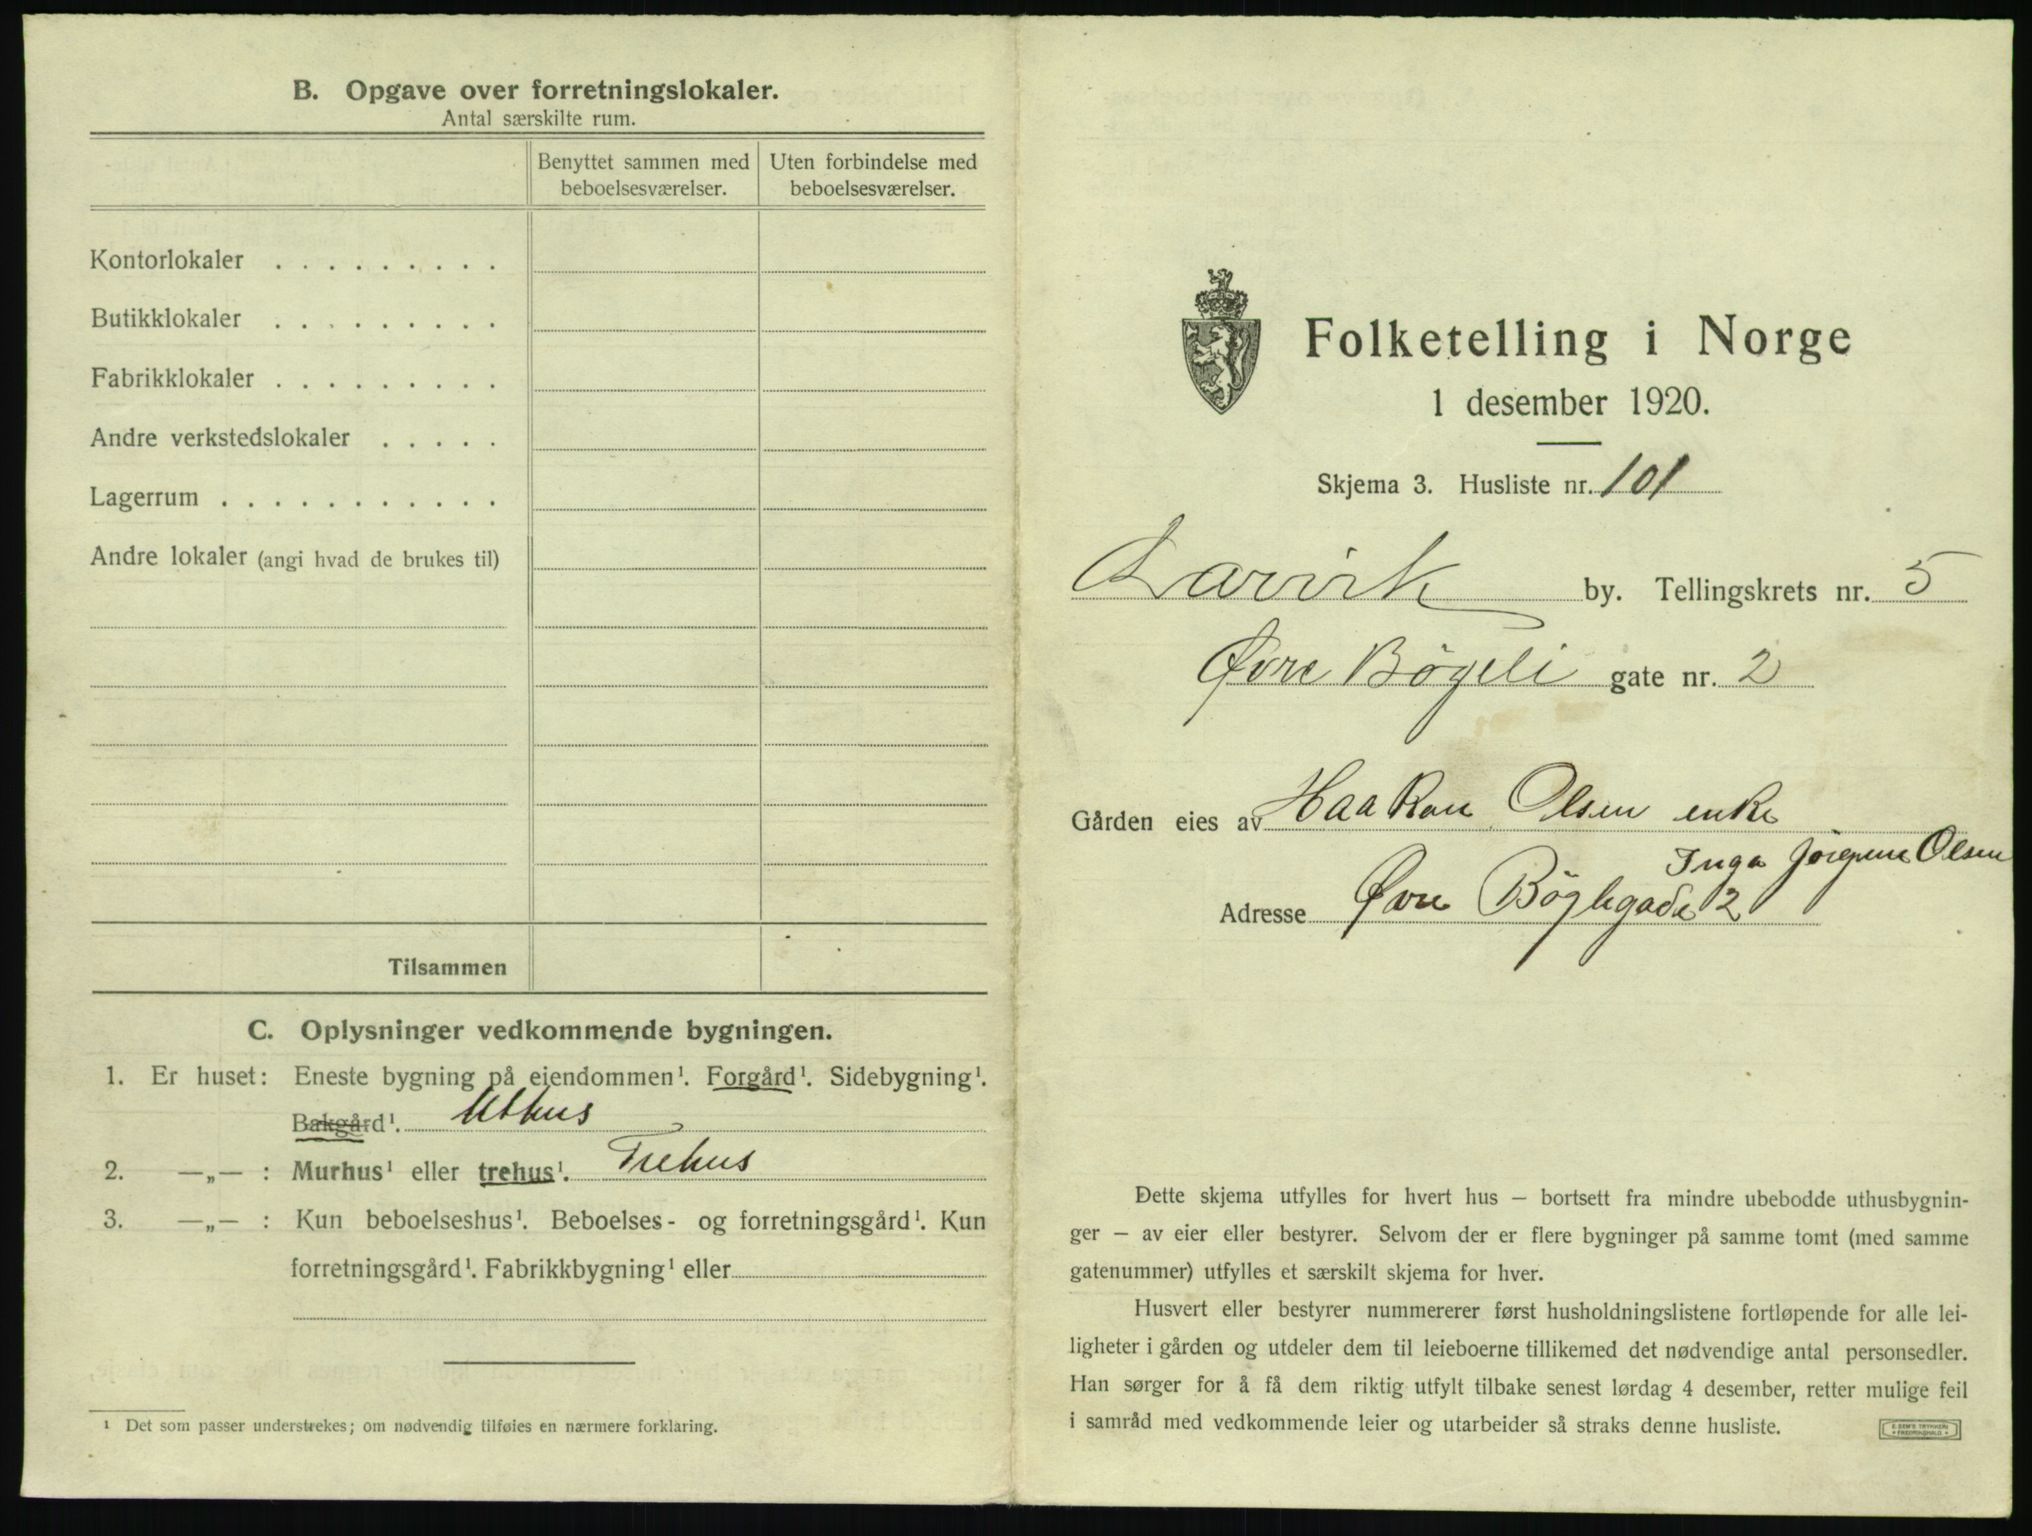 B. Opgave over forretningslokaler.
Antal særskilte rum.
Benyttet sammen med beboelsesværelser.
Uten forbindelse med beboelsesværelser.
Kontorlokaler . . . . . . . . .
Butikklokaler . . . . . . . . .
Fabrikklokaler . . . . . . . . .
Andre verkstedslokaler . . . . .
Lagerrum . . . . . . . . . . .
Andre lokaler (angi hvad de brukes til)
Tilsammen
C. Oplysninger vedkommende bygningen.
1. Er huset: Eneste bygning på eiendommen¹. Forgård¹. Sidebygning¹.
Bakgård¹. Uthus
2. —„— : Murhus¹ eller trehus¹. Trehus
3. —„— : Kun beboelseshus¹. Beboelses- og forretningsgård¹. Kun
forretningsgård¹. Fabrikkbygning¹ eller
¹ Det som passer understrekes; om nødvendig tilføies en nærmere forklaring.
Folketelling i Norge
1 desember 1920.
Skjema 3. Husliste nr. 101
Larvik by. Tellingskrets nr. 5
Øvre Bøgeli gate nr. 2
Gården eies av Haakon Olsen enke
Inga Jørgine Olsen
Adresse Øvre Bøgligade 2
Dette skjema utfylles for hvert hus – bortsett fra mindre ubebodde uthusbygnin-
ger – av eier eller bestyrer. Selvom der er flere bygninger på samme tomt (med samme
gatenummer) utfylles et særskilt skjema for hver.
Husvert eller bestyrer nummererer først husholdningslistene fortløpende for alle lei-
ligheter i gården og utdeler dem til leieboerne tillikemed det nødvendige antal personsedler.
Han sørger for å få dem riktig utfylt tilbake senest lørdag 4 desember, retter mulige feil
i samråd med vedkommende leier og utarbeider så straks denne husliste.